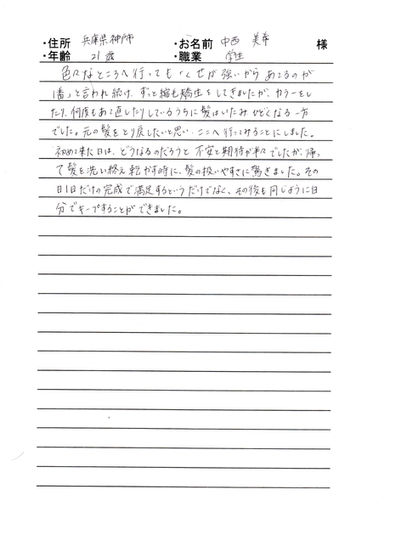 ・住所 兵庫県神戸市 ・お名前 中西 美幸 様
・年齢 21歳 ・職業 学生
色々なところへ行っても「くせが強いから あてるのが
1番」と言われ続け、ずっと縮毛矯正をしてきましたが、カラーをし
たり、何度もあて直したりしているうちに髪はいたみ ひどくなる一方
でした。元の髪をとり戻したいと思い、ここへ行ってみることにしました。
初めて来た日は、どうなるのだろうと 不安と期待が半々でしたが、帰っ
て髪を洗い終え 乾かす時に、髪の扱いやすさに驚きました。その
日1日だけの完成で満足するというだけでなく、その後も同じように自
分でキープすることができました。